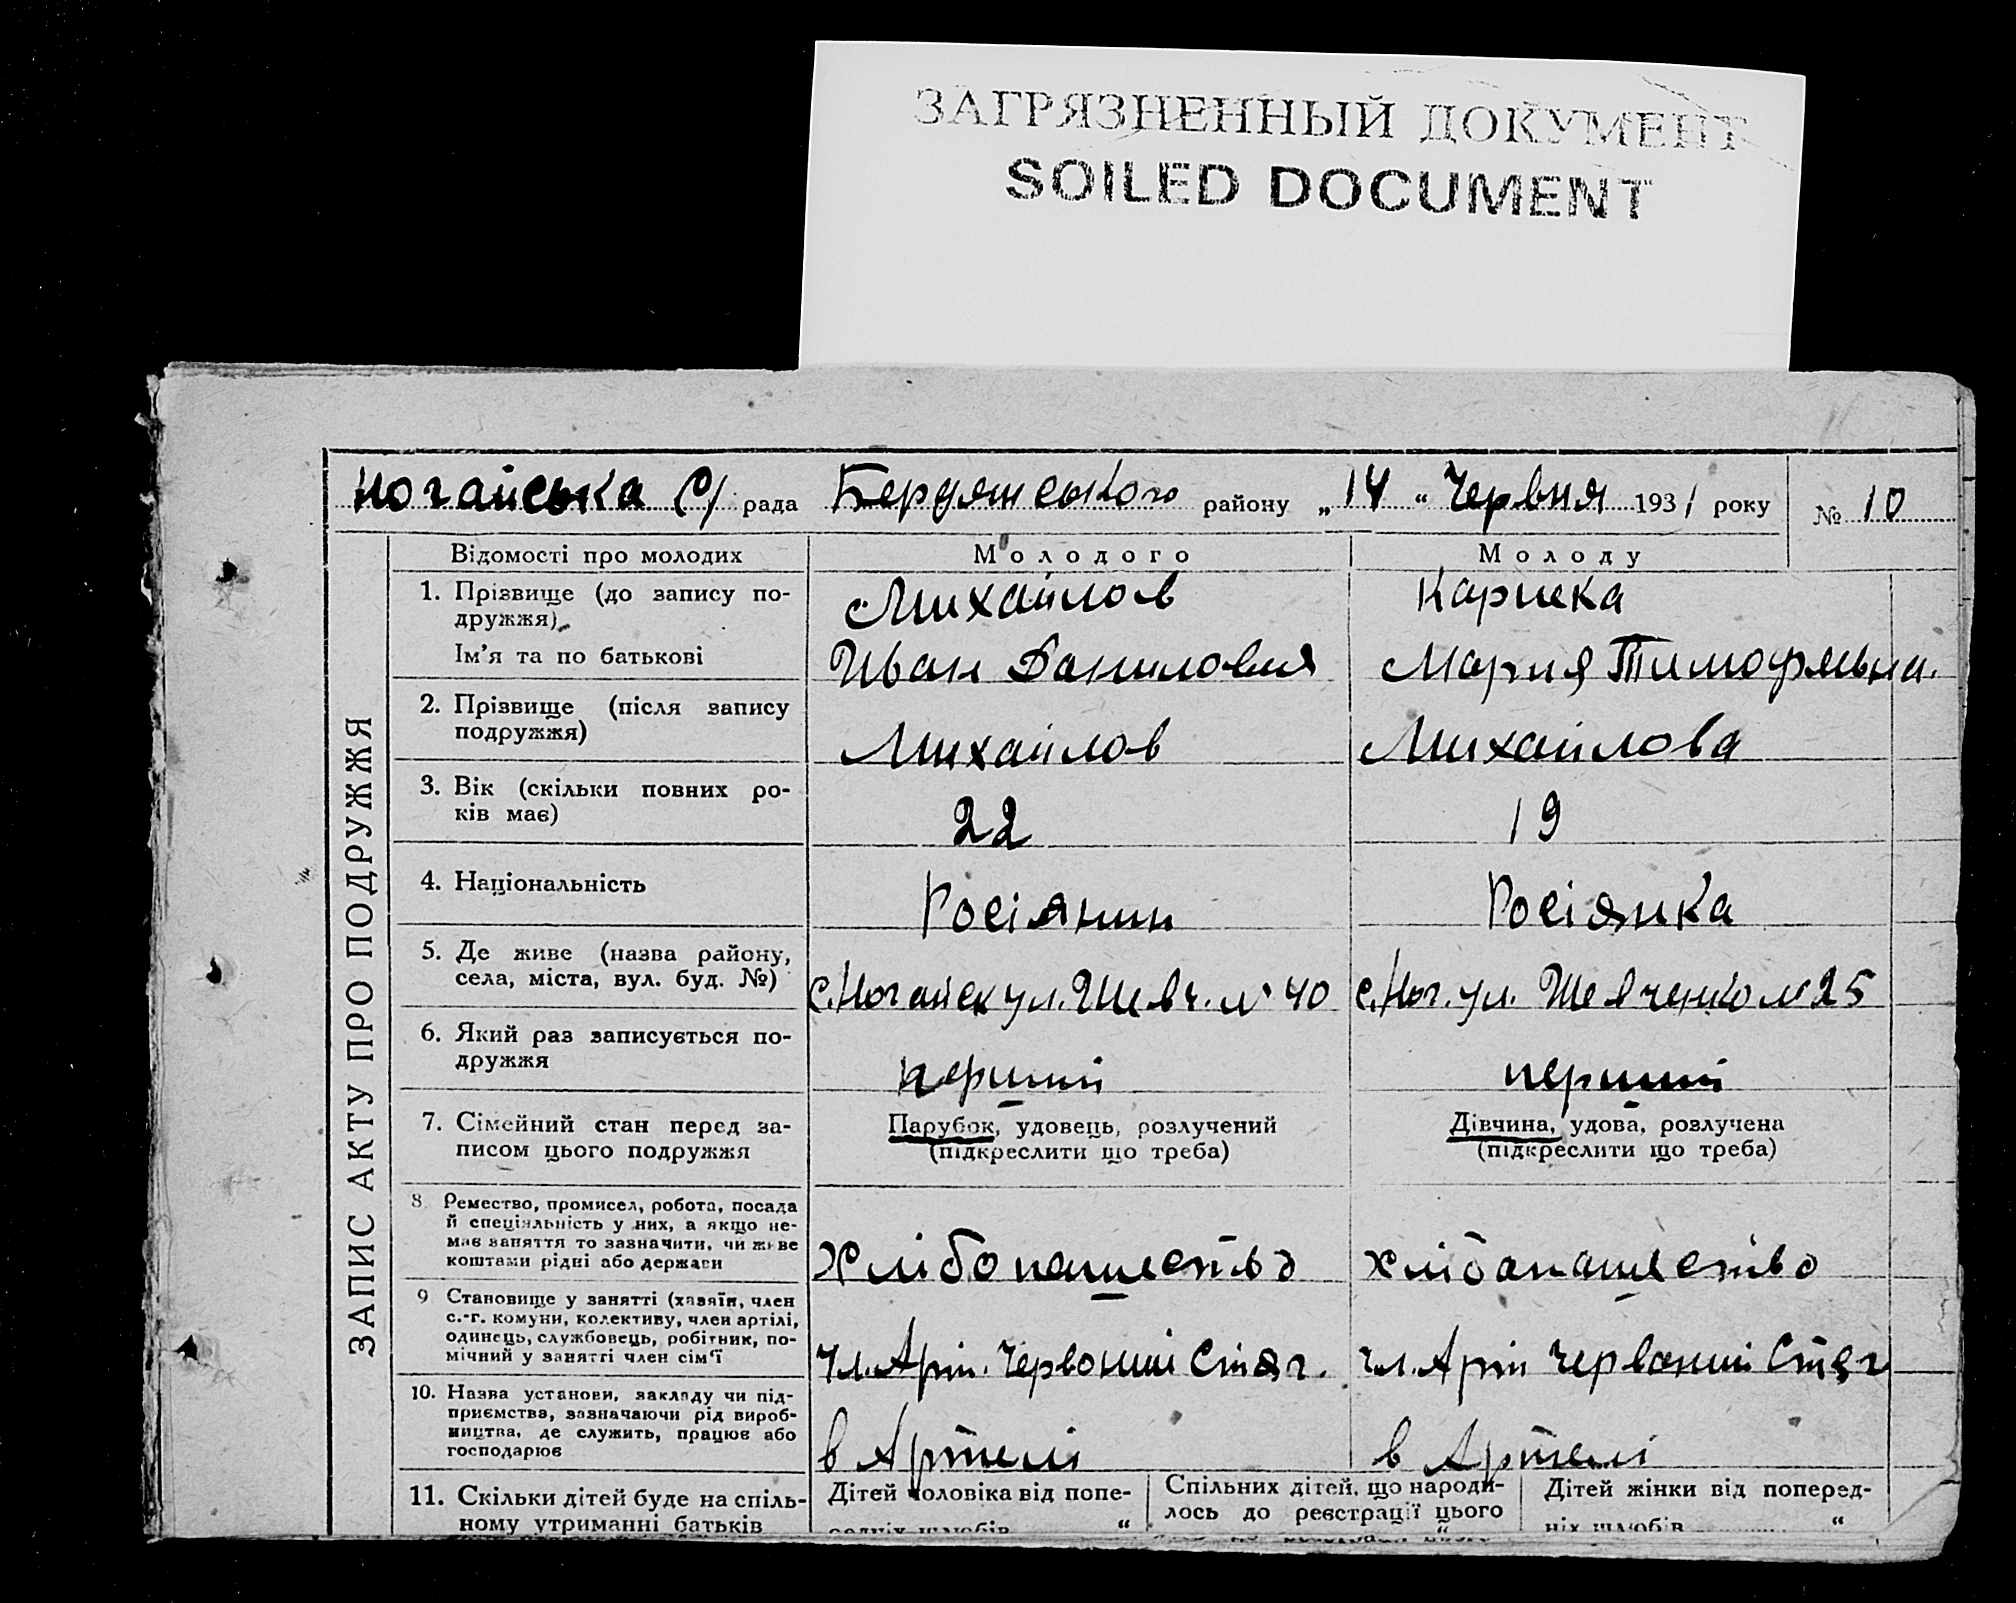 ЗАГРЯЗНЕННЫЙ ДОКУМЕНТ
SOILED DOCUMENT
Ногайська С/ рада Бердянського району „14“ Червня 1931 року № 10
ЗАПИС АКТУ ПРО ПОДРУЖЖЯ
Відомості про молодих Молодого Молоду
1. Прізвище (до запису по-
дружжя) Михайлов
Ім'я та по батькові Иван Данилович Мария Тимофяьвна.
2. Прізвище (після запису
подружжя) Михайлов Михайлова
3. Вік (скільки повних ро-
ків має) 22 19
4. Національність Росіянин Росіянка
5. Де живе (назва району,
села, міста, вул. буд. №) с. Ногайск ул. Шевч. № 40 с. Ног. ул. Шевченко № 25
6. Який раз записується по-
дружжя перший перший
7. Сімейний стан перед за-
писом цього подружжя
Парубок, удовець, розлучений
(підкреслити що треба)
Дівчина, удова, розлучена
(підкреслити що треба)
8 Ремество, промисел, робота, посада
й спеціяльність у них, а якщо не-
має заняття то зазначити, чи живе
коштами рідні або держави
Хлібопашество хлібапашество
9 Становище у занятті (хазяїн, член
с.-г. комуни, колективу, член артілі,
одинець, службовець, робітник, по-
мічний у занятті член сім'ї
Чл. Арт. Червоний Стяг. Чл. Арт Червоний Стяг
10. Назва установи, закладу чи під-
приємства, зазначаючи рід вироб-
ництва, де служить, працює або
господарює
в Артелі в Артелі
11. Скільки дітей буде на спіль-
ному утриманні батьків
Дітей чоловіка від попе-
редніх шлюбів “
Спільних дітей, що народи-
лось до реєстрації цього
“
Дітей жінки від поперед-
ніх шлюбів “